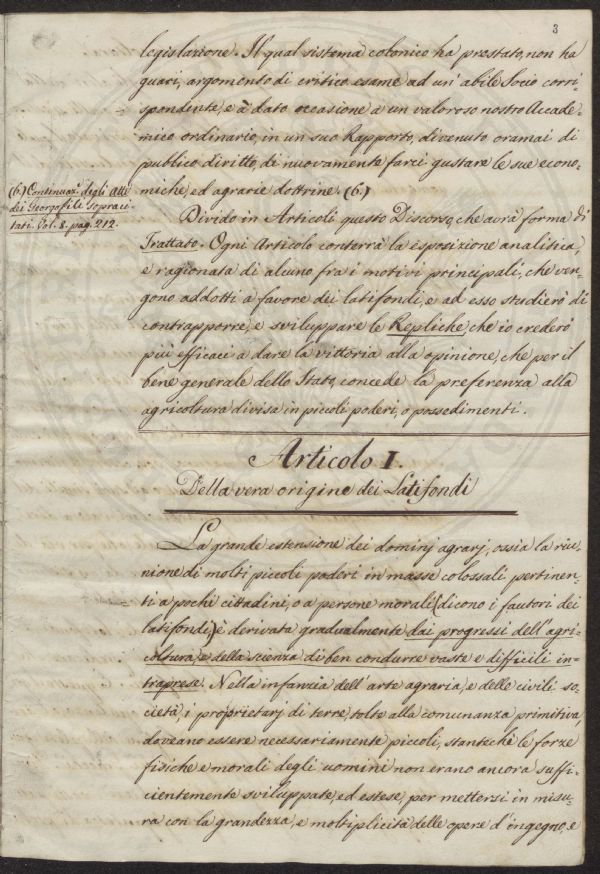 3
legislazione. Il qual sistema colonico ha prestato, non ha
guari, argomento di critico esame ad un' abile Socio corri-
spondente, e à dato occasione a un valoroso nostro Accade-
mico ordinario, in un suo Rapporto, divenuto oramai di
publico diritto, di nuovamente farci gustare le sue econo-
miche, ed agrarie dottrine. (6.)
(6.) Continuaz.e degli Atti
dei Georgofili sopraci-
tati. Vol. 8. pag. 212.
Divido in Articoli questo Discorso, che avrà forma di
Trattato. Ogni Articolo conterrà la esposizione analitica,
e ragionata di alcuno fra i motivi principali, che ven-
gono addotti a favore dei latifondi, e ad esso studierò di
contrapporre, e sviluppare le Repliche, che io crederò
più efficaci a dare la vittoria alla opinione, che per il
bene generale dello Stato, concede la preferenza alla
agricoltura divisa in piccoli poderi, o possedimenti.
Articolo I.
Della vera origine dei Latifondi
La grande estensione dei dominj agrarj, ossia la riu-
nione di molti piccoli poderi in masse colossali pertinen-
ti a pochi cittadini, o a persone morali (dicono i fautori dei
latifondi) è derivata gradualmente dai progressi dell'agri-
coltura, e della scienza di ben condurre vaste e difficili in-
traprese. Nella infanzia dell'arte agraria, e delle civili so-
cietà, i proprietarj di terre, tolte alla comunanza primitiva,
doveano essere necessariamente piccoli, stantechè le forze
fisiche e morali degli uomini non erano ancora suffi-
cientemente sviluppate, ed estese, per mettersi in misu-
ra con la grandezza, e moltiplicità delle opere d'ingegno, e